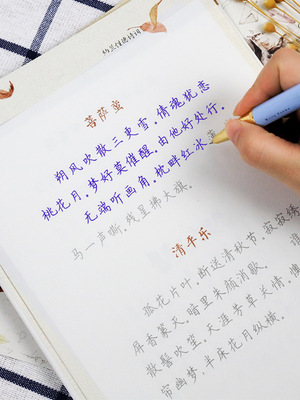 纳兰性德诗词
菩萨蛮
朔风吹散三更雪，倩魂犹恋
桃花月。梦好莫催醒，由他好处行。
无端听画角，枕畔红冰薄
马一声嘶，残星拂大旗。
清平乐
孤花片叶，断送清秋节。寂寂绣
屏香篆灭，暗里朱颜消歇。
散髻吹笙，天涯芳草关情。懊
帘幽梦，半床花月纵横。